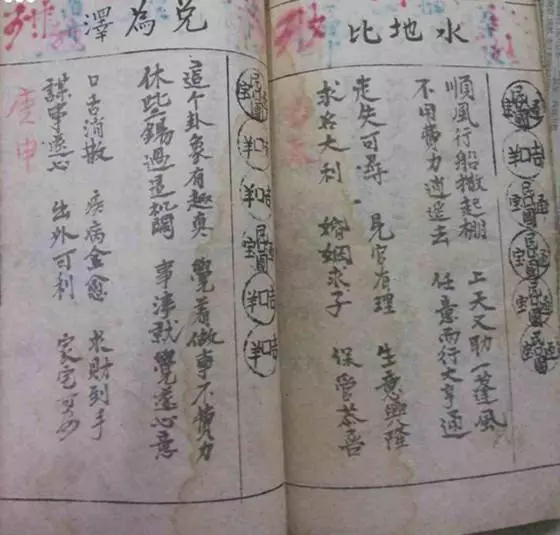 水地比
順風行船撒起棚 上天又助一蓬風
不用費力逍遥去 任意而行大亨通
走失可尋 見官有理 生意興隆
求名大利 婚姻求子 保管恭喜
兌為澤
這个卦象有趣真 覺着做事不費力
休 錯過這机関 事 就覺遂心意
口舌消散 疾病全愈 求財到手
謀事遂心 出外可利 家宅
庚申